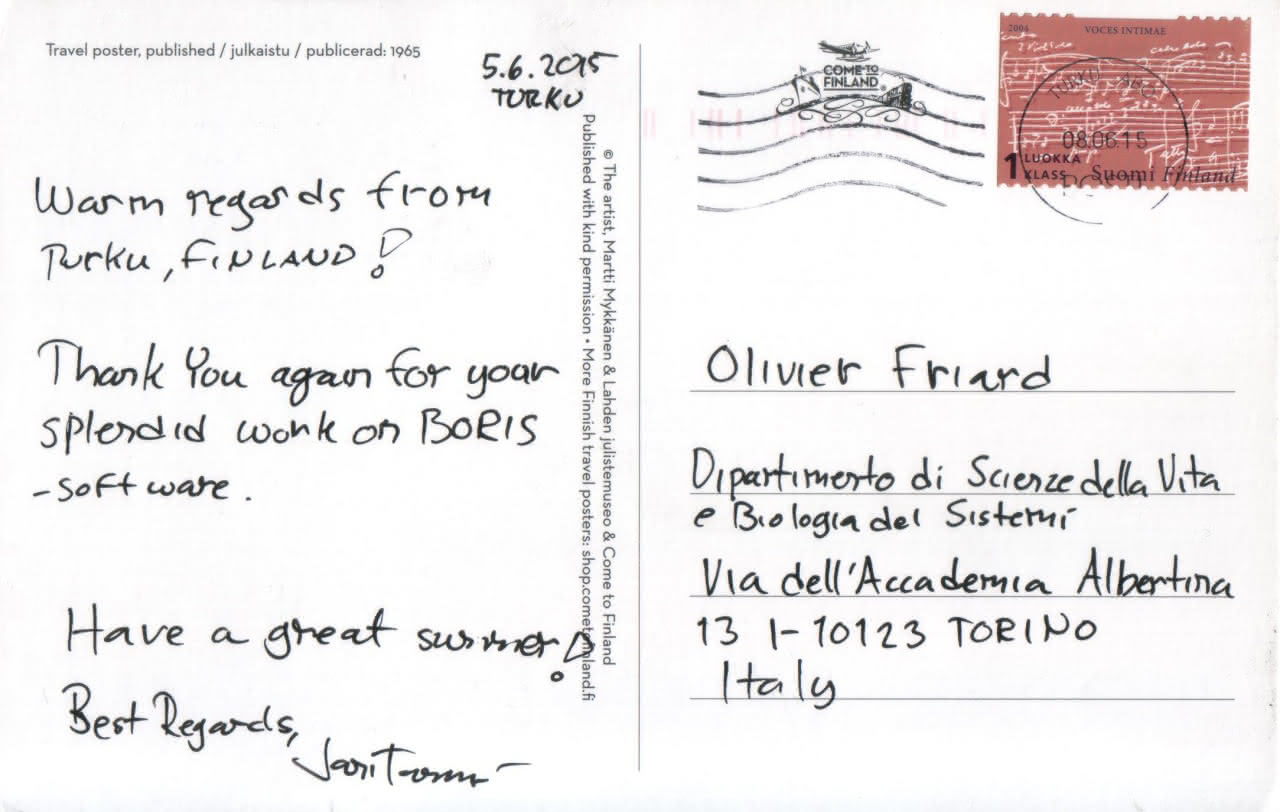 Travel poster, published / julkaistu / publicerad: 1965
5.6.2015
TURKU
Warm regards from
Turku, FINLAND!
Thank You again for your
splendid work on BORIS
-software.
Have a great summer!
Best Regards,
© The artist, Martti Mykkänen & Lahden julistemuseo & Come to Finland
Published with kind permission • More Finnish travel posters: shop.cometofinland.fi
COME TO
FINLAND
2004 VOCES INTIMAE
TURKU ÅBO
08.06.15
1 LUOKKA
KLASS Suomi Finland
Olivier Friard
Dipartimento di Scienze della Vita
e Biologia dei Sistemi
Via dell'Accademia Albertina
13 I-10123 TORINO
Italy